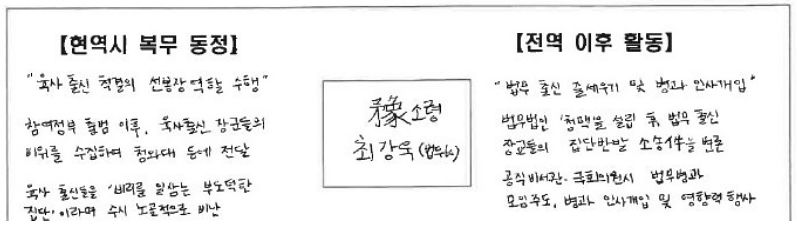 【현역시 복무 동정】
"육사 출신 척결의 선봉장 역할 수행"
참여정부 출범 이후, 육사출신 장군들의
비위를 수집하여 청와대 등에 전달
육사 출신들을 '비리를 일삼는 부도덕한
집단'이라며 수시 노골적으로 비난
豫소령
최강욱(법무
【전역 이후 활동】
"법무 출신 줄세우기 및 병과 인사개입"
법무법인 '청맥'을 설립 후, 법무 출신
장교들의 집단반발 소송件을 변론
공직비서관·국회의원시 법무병과
모임주도, 병과 인사개입 및 영향력 행사